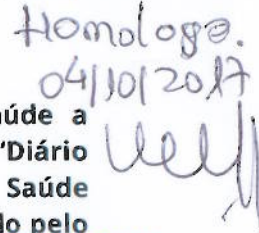 Homologo.
04/10/2017
aúde a
"Diário
Saúde
do pelo